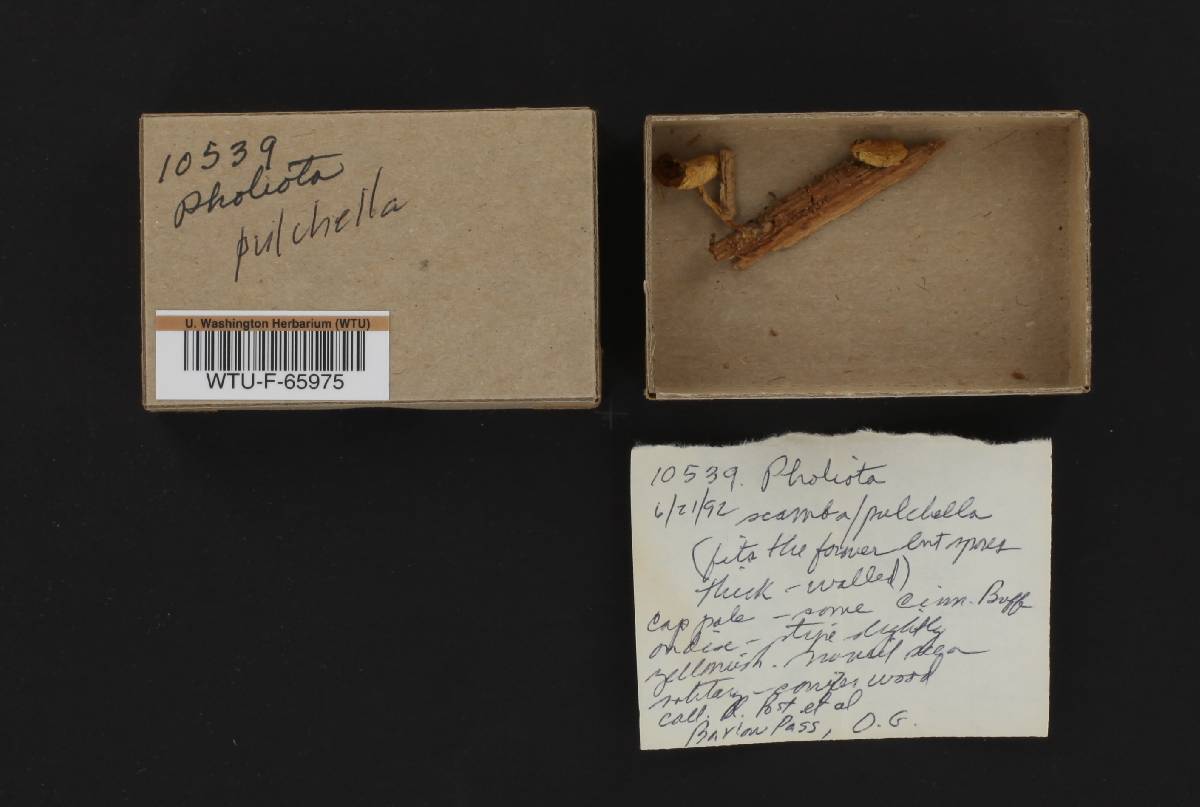 10539
Pholiota
pulchella
U. Washington Herbarium (WTU)
WTU-F-65975
10539. Pholiota
6/21/92 scamba/pulchella
(fits the former but spores
thick-walled)
cap pale - some Cinn. Buff
on disc - stipe slightly
yellowish. no veil seen
solitary - conifer wood
coll. Post et al
Barlow Pass, O.G.